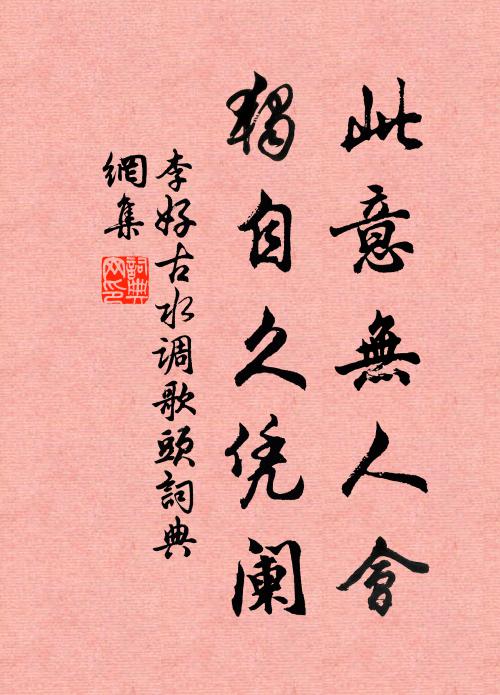 此意無人會
獨自久凭阑
李好古水调歌頭詞典
網集
詞典
网印